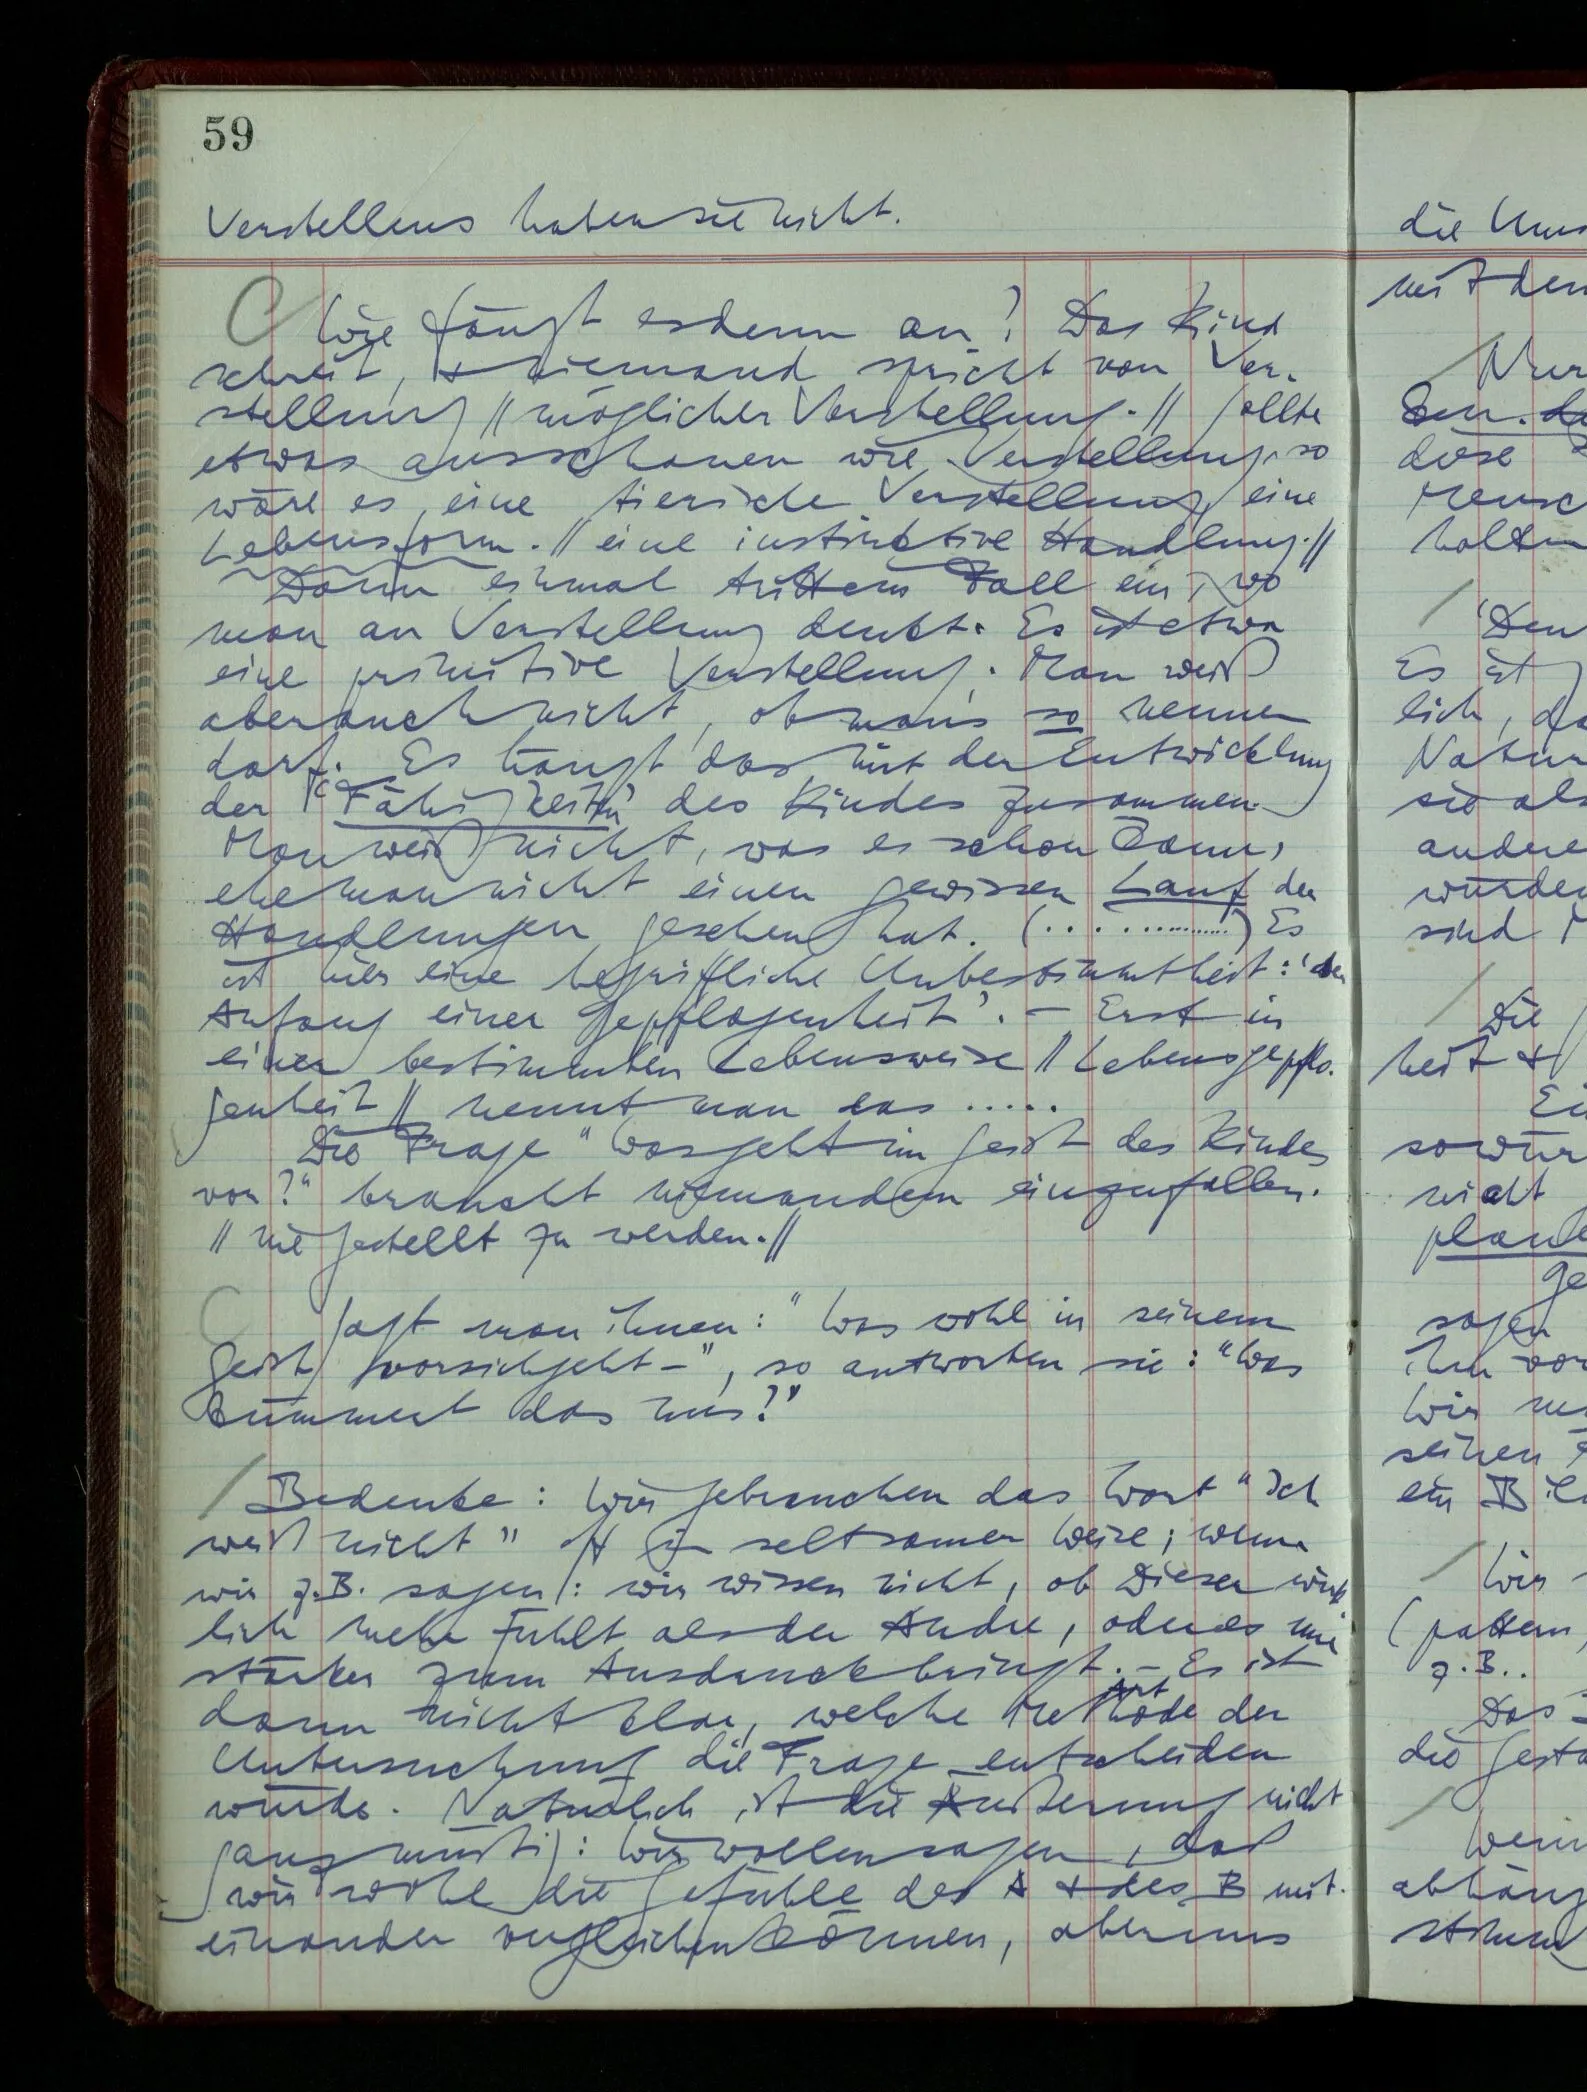 59
Verstellens haben sie nicht.
Wie fängt es denn an? Das Kind
schreit, & niemand spricht von Ver-
stellung // möglicher Verstellung. // Sollte
etwas ausschauen wie Verstellung, so
wäre es eine tierische Verstellung, eine
Lebensform. // eine instinktive Handlung. //
Dann einmal tritt ein Fall ein, wo
man an Verstellung denkt. Es ist etwa
eine primitive Verstellung. Man weiß
aber auch nicht, ob man's so nennen
darf. Es hängt das mit der Entwicklung
der 'Fähigkeiten' des Kindes zusammen.
Man weiß nicht, was es schon kann,
ehe man nicht einen gewissen Lauf der
Handlungen gesehen hat. (..............) Es
ist hier eine begriffliche Unbestimmtheit: 'der
Anfang einer Gepflogenheit'. – Erst in
einer bestimmten Lebensweise // Lebensgepflo-
genheit // nennt man das .....
Die Frage "Was geht im Geist des Kindes
vor?" braucht niemandem einzufallen.
// nie gestellt zu werden. //
Sagt man ihnen: "Was wohl in seinem
Geist vorsichgeht –", so antworten sie: "Was
kümmert das uns?"
Bedenke: Wir gebrauchen das Wort "Ich
weiß nicht" oft in seltsamer Weise; wenn
wir z.B. sagen: wir wissen nicht, ob Dieser wirk-
lich mehr fühlt als der Andre, oder es nur
stärker zum Ausdruck bringt. – Es ist
dann nicht klar, welche Methode der
Art
Untersuchung die Frage entscheiden
würde. Natürlich ist die Äußerung nicht
ganz müßig: Wir wollen sagen, daß
wir wohl die Gefühle des A & des B mit-
einander vergleichen können, aber uns
die
mit den
Nur
diese
Es ist
lich, da
Natur
sie als
andere
würden
sind
Die
heit &
nicht
sagen
ihm vor
Wir
seinen
ein
Wir
(pattern,
z.B..
Das
die